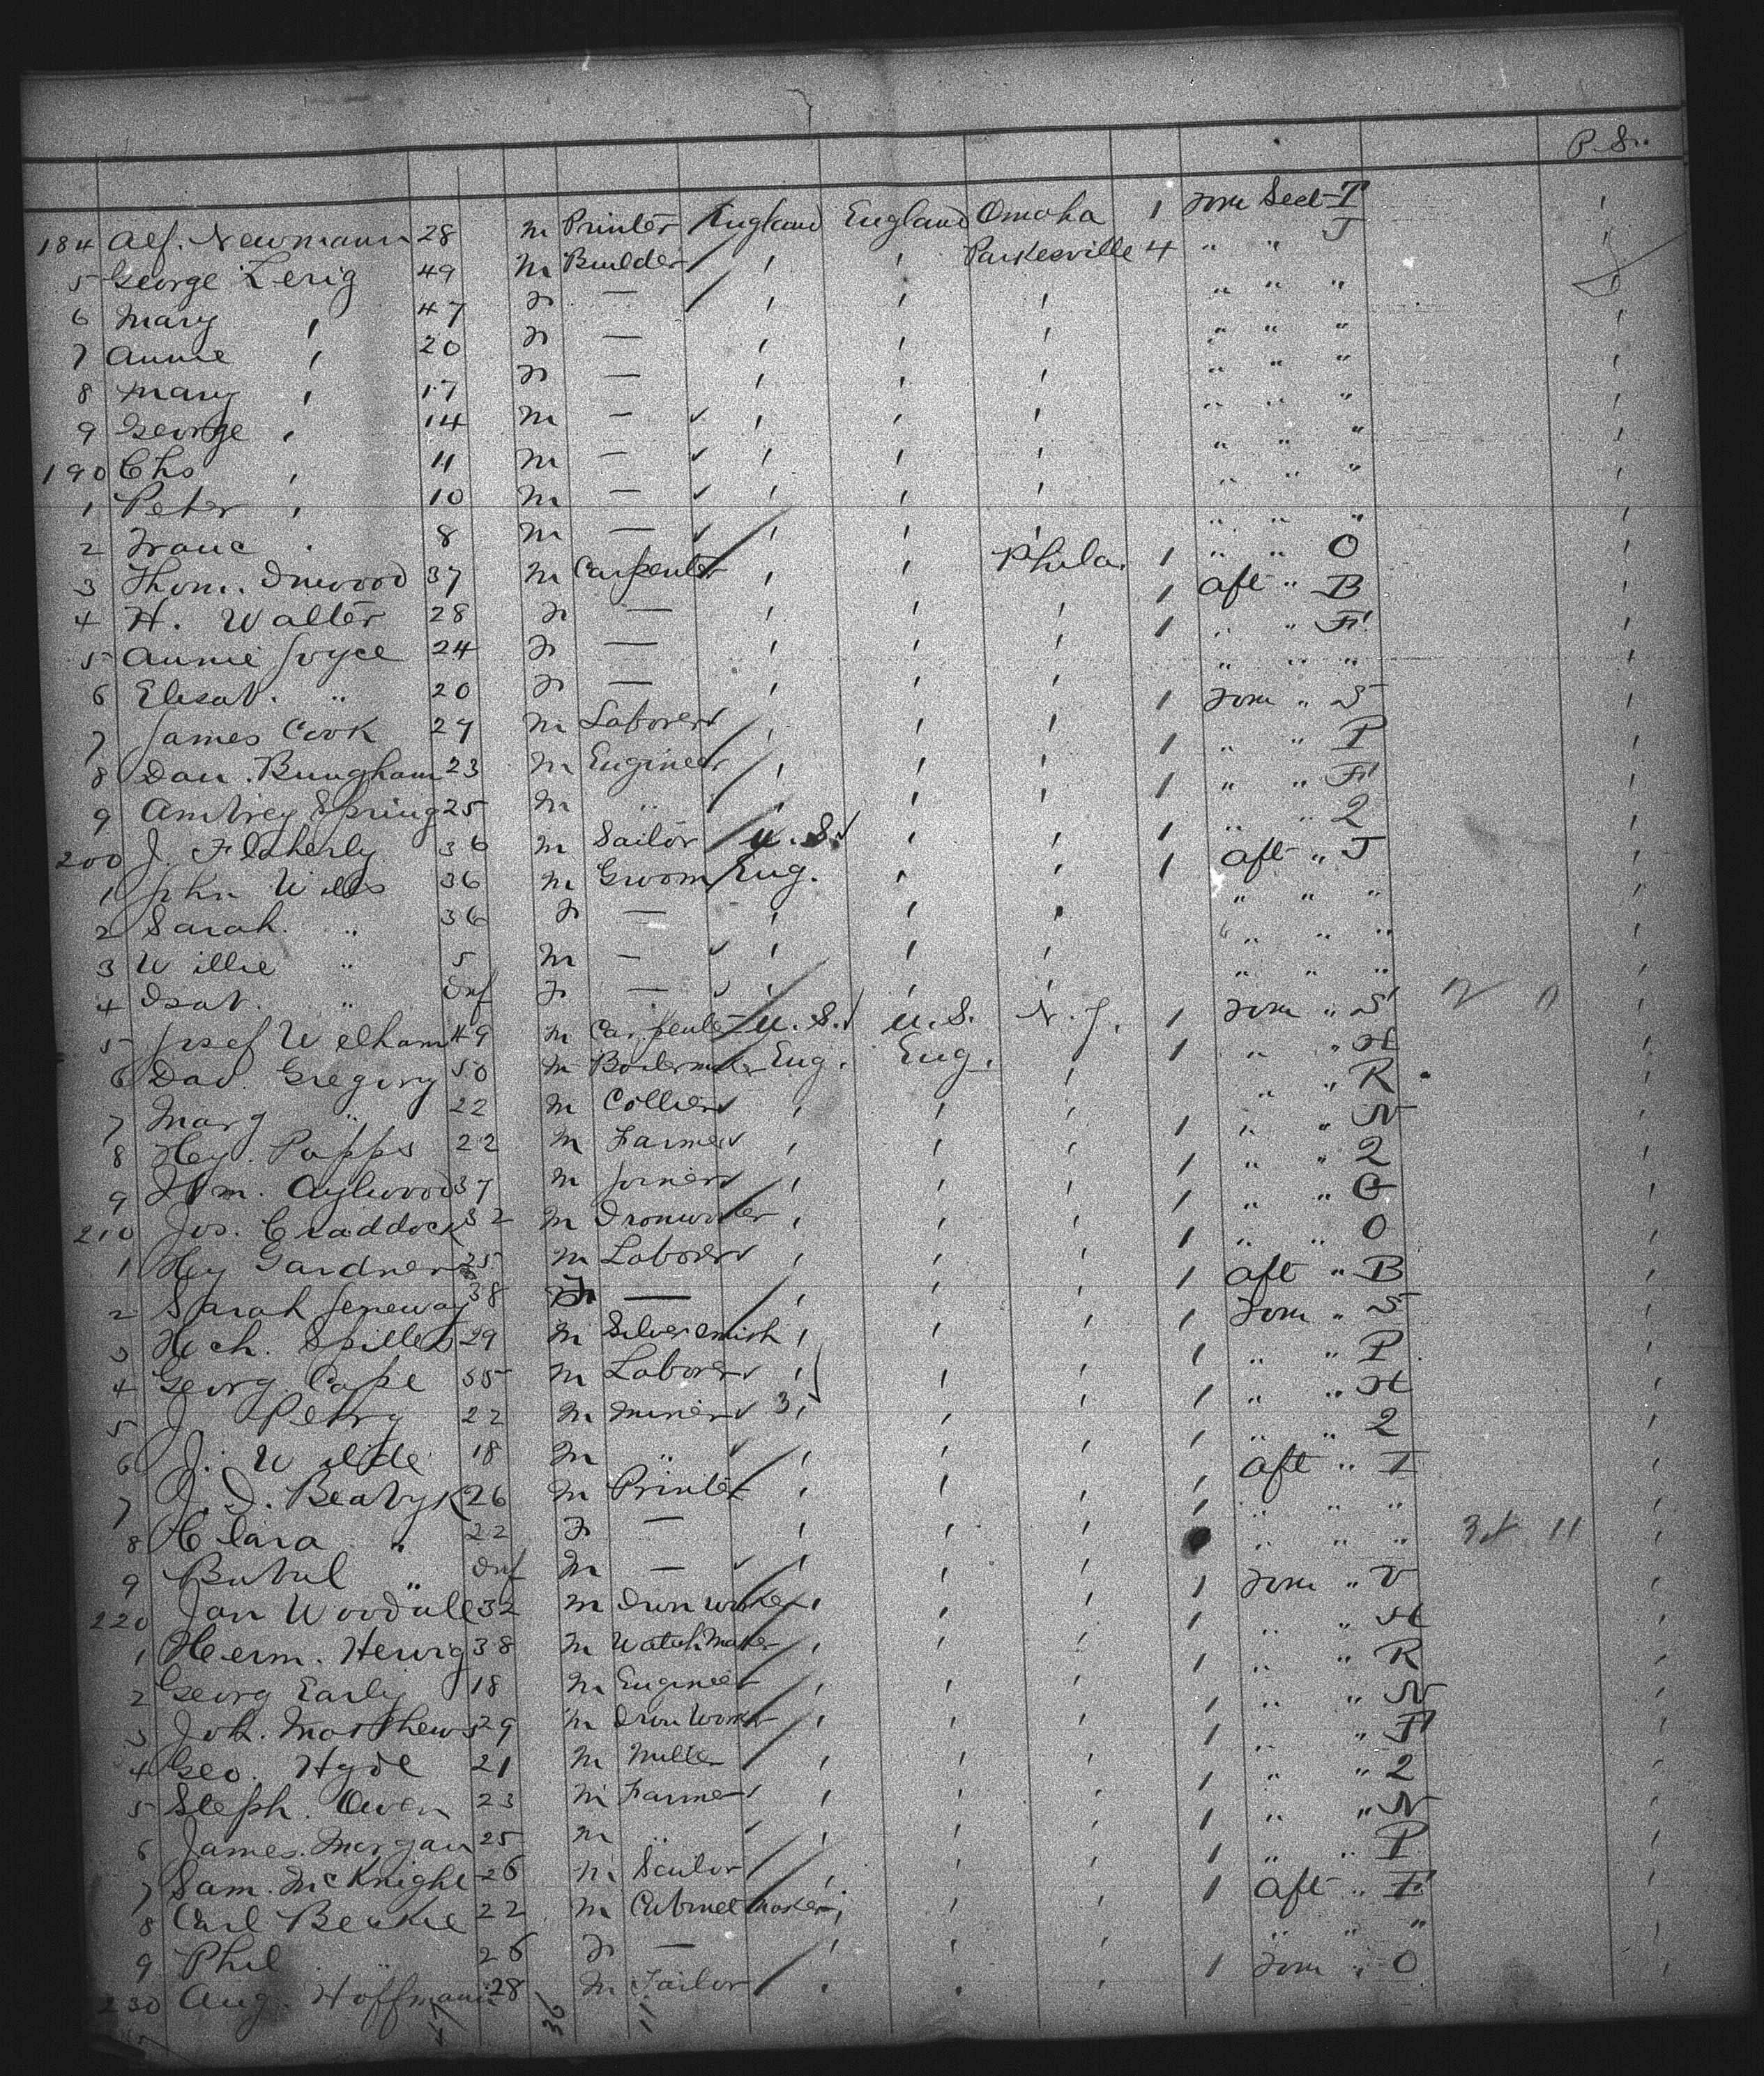 P. S.
184 Alf. Newmann 28 m Printer England England Omaha 1 Form Sect I
5 George Zerig 49 m Builder ' ' Parkesville 4 " " J
6 Mary ' 47 F — ' ' ' " " "
7 Annie ' 20 F — ' ' ' " " "
8 Mary ' 17 F — ' ' ' " " "
9 George ' 14 m — ' ' ' " " "
190 Chs ' 11 m — ' ' ' " " "
1 Peter ' 10 m — ' ' ' " " "
2 Franc ' 8 m — ' ' ' " " "
3 Thom. Inwood 37 m Carpenter ' ' Phila. 1 " " O
4 H. Walter 28 F — ' ' ' 1 aft " B
5 Annie Joyce 24 F — ' ' ' 1 " " F
6 Elisab. " 20 F — ' ' ' " " "
7 James Cook 29 m Laborer ' ' ' 1 Form " S
8 Dan. Bungham 23 m Engineer ' ' ' 1 " " P
9 Spring 25 m " ' ' ' 1 " " F
200 J. Flaherly 36 m Sailor U.S. ' ' 1 " " 2
1 John Wills 36 m Groom Eng. ' ' 1 aft " J
2 Sarah " 36 F — ' ' ' " " "
3 Willie " 5 m — ' ' ' " " "
4 Isab. " Inf F — ' ' ' " " "
5 Josef Welham 49 m Carpenter U.S. U.S. N.J. 1 Form " S
6 Dav. Gregory 50 m Boilermaker Eng. Eng. ' 1 " " H
7 Mary " 22 m Collier ' ' ' " " R
8 Hey. Papps 22 m Farmer ' ' ' 1 " " N
9 Wm. Aylwood 37 m Joiner ' ' ' 1 " " 2
210 Jos. Craddock 32 m Ironworker ' ' ' 1 " " G
1 Hey Gardner 25 m Laborer ' ' ' 1 " " O
2 Sarah Jeneway 38 F — ' ' ' 1 aft " B
3 Spiller 29 m Silversmish ' ' ' 1 Form " S
4 Georg Cape 35 m Laborer ' ' ' 1 " " P
5 J. Petry 22 m Miner 3 ' ' ' 1 " " H
6 J. Wilde 18 m " ' ' ' 1 " " 2
7 26 m Printer ' ' ' 1 aft " I
8 Clara " 22 F — ' ' ' 1 " " "
9 " Inf m — ' ' ' " " " 11
220 Jan Woodall 32 m Iron worker ' ' ' 1 Form " V
1 Herm. Herwig 38 m Watch Maker ' ' ' 1 " " H
2 Georg Early 18 m Engineer ' ' ' 1 " " R
3 Joh. Matthews 29 m Iron Worker ' ' ' 1 " " N
4 Geo. Hyde 21 m Miller ' ' ' 1 " " F
5 Steph. Owen 23 m Farmer ' ' ' 1 " " 2
6 James Morgan 25 m " ' ' ' 1 " " N
7 Sam. McKnight 26 m Sailor ' ' ' 1 " " P
8 Carl 22 m Cabinetmaker ' ' ' 1 aft " F
9 Phil " 26 F — ' ' ' " " "
230 Aug. Hoffmann 28 m Tailor ' ' ' 1 Form " O
36 11